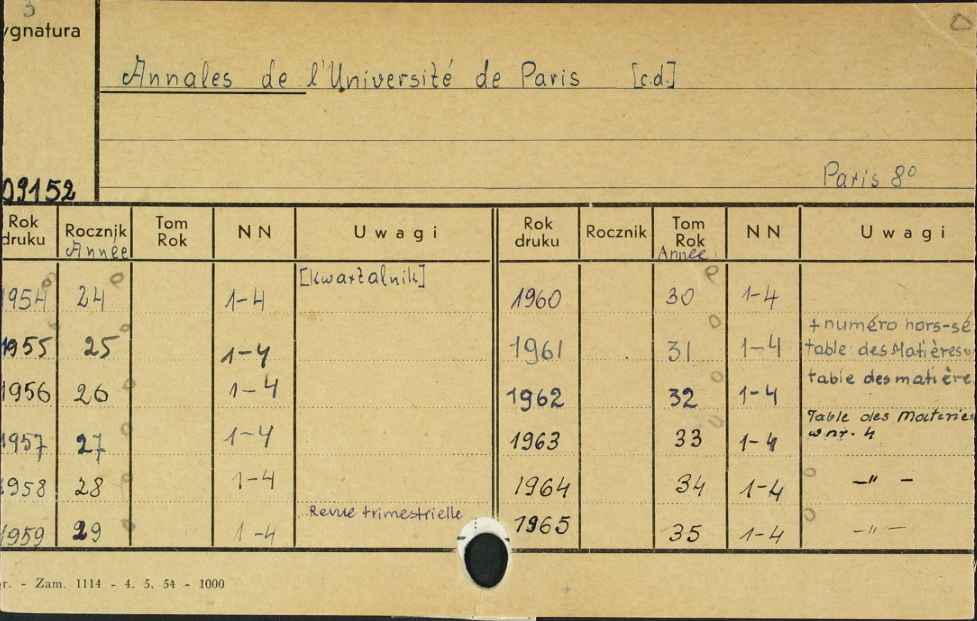 3
ygnatura
Annales de l'Université de Paris [c.d.]
Paris 8°
09152
Rok druku Rocznik Année Tom Rok NN Uwagi Rok druku Rocznik Tom Rok Année NN Uwagi
1954 24 1-4 [kwartalnik] 1960 30 1-4
1955 25 1-4 1961 31 1-4 + numéro hors-sé table des Matières
1956 26 1-4 1962 32 1-4 table des matière
1957 27 1-4 1963 33 1-4 Table des Matières w nr. 4
1958 28 1-4 1964 34 1-4 —"—
1959 29 1-4 Revue trimestrielle 1965 35 1-4 —"—
r. - Zam. 1114 - 4. 5. 54 - 1000